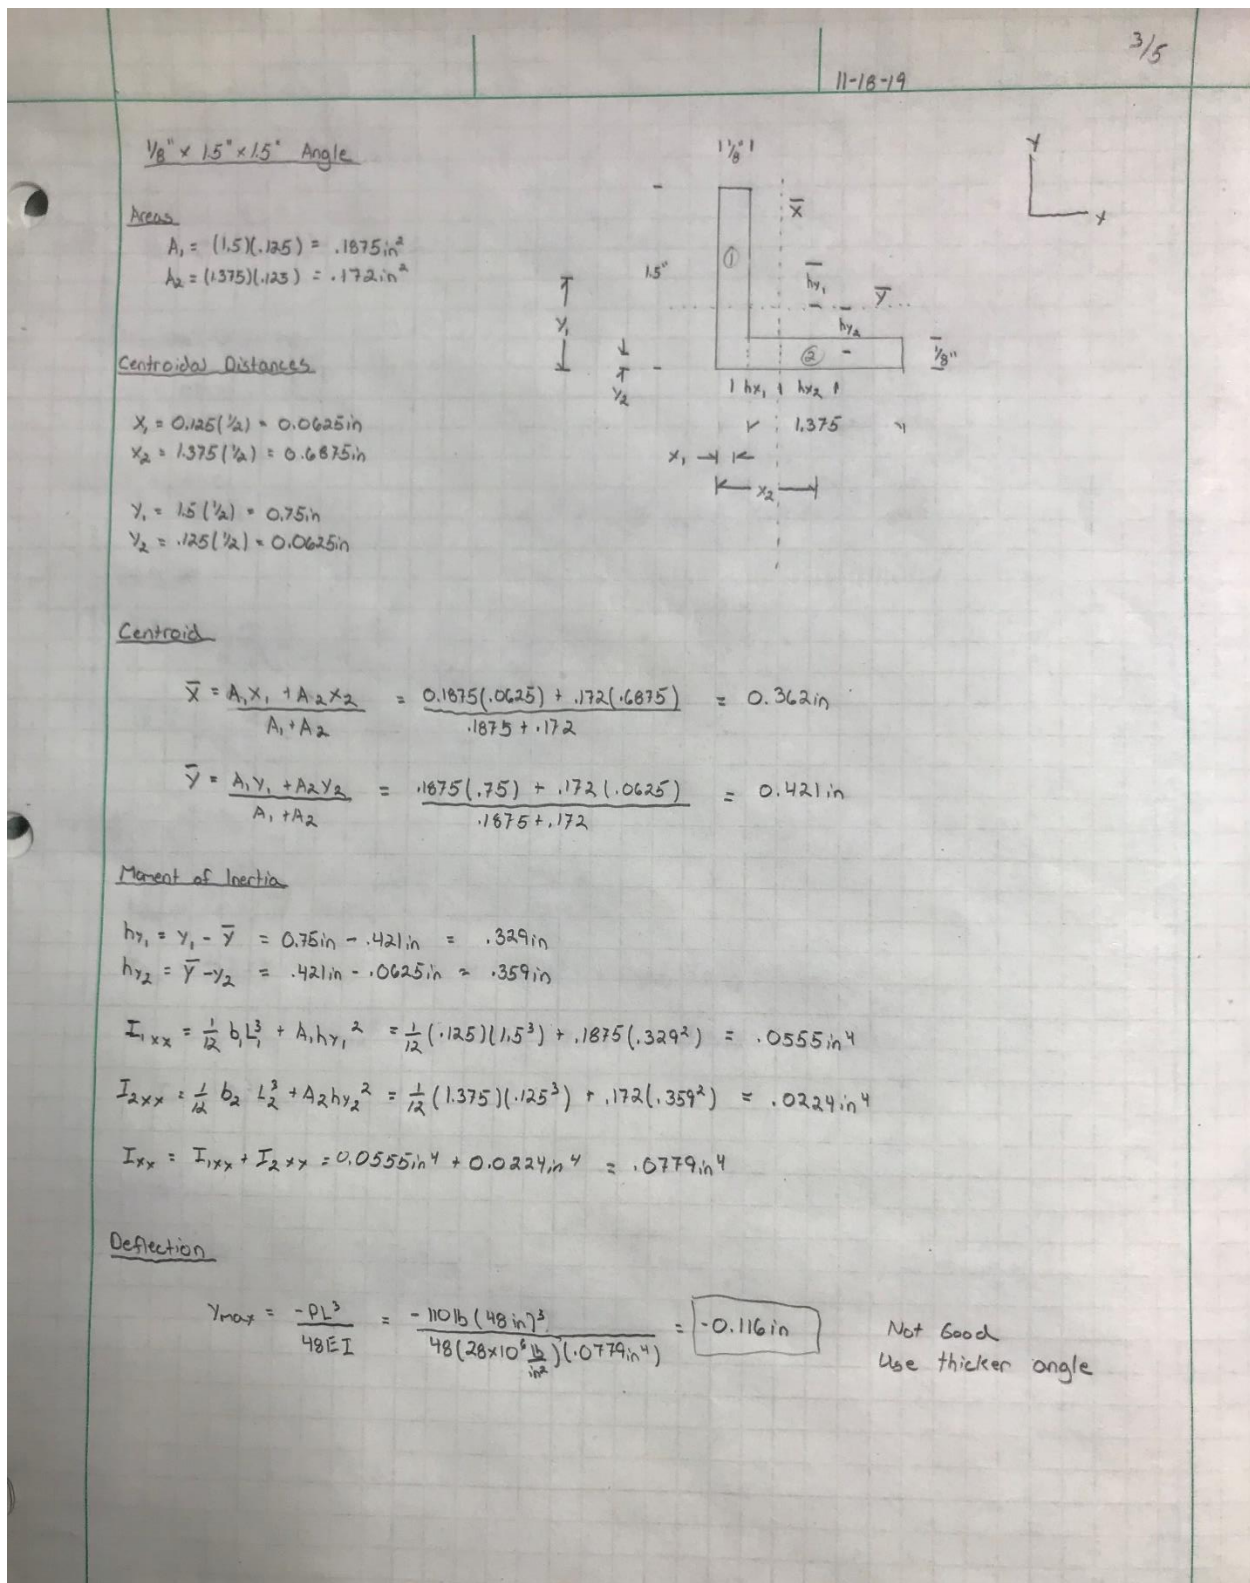 3/5
11-18-19
1/8" x 1.5" x 1.5" Angle
Areas
A₁ = (1.5)(.125) = .1875in²
A₂ = (1.375)(.125) = .172in²
Centroidal Distances
X₁ = 0.125(1/2) = 0.0625in
X₂ = 1.375(1/2) = 0.6875in
Y₁ = 1.5(1/2) = 0.75in
Y₂ = .125(1/2) = 0.0625in
1/8"
X̄
①
1.5"
hy₁
Ȳ
hy₂
Y₁
②
1/8"
Y₂
hx₁ hx₂
1.375
X₁
X₂
Y
X
Centroid
X̄ = A₁X₁ + A₂X₂ / A₁ + A₂ = 0.1875(.0625) + .172(.6875) / .1875 + .172 = 0.362in
Ȳ = A₁Y₁ + A₂Y₂ / A₁ + A₂ = .1875(.75) + .172(.0625) / .1875 + .172 = 0.421in
Moment of Inertia
hy₁ = Y₁ - Ȳ = 0.75in - .421in = .329in
hy₂ = Ȳ - Y₂ = .421in - .0625in = .359in
I₁xx = 1/12 b₁L₁³ + A₁hy₁² = 1/12 (.125)(1.5³) + .1875(.329²) = .0555in⁴
I₂xx = 1/12 b₂ L₂³ + A₂hy₂² = 1/12 (1.375)(.125³) + .172(.359²) = .0224in⁴
Ixx = I₁xx + I₂xx = 0.0555in⁴ + 0.0224in⁴ = .0779in⁴
Deflection
Ymax = -PL³ / 48EI = -110lb(48in)³ / 48(28x10⁶ lb/in²)(.0779in⁴) = -0.116in
Not Good
Use thicker angle